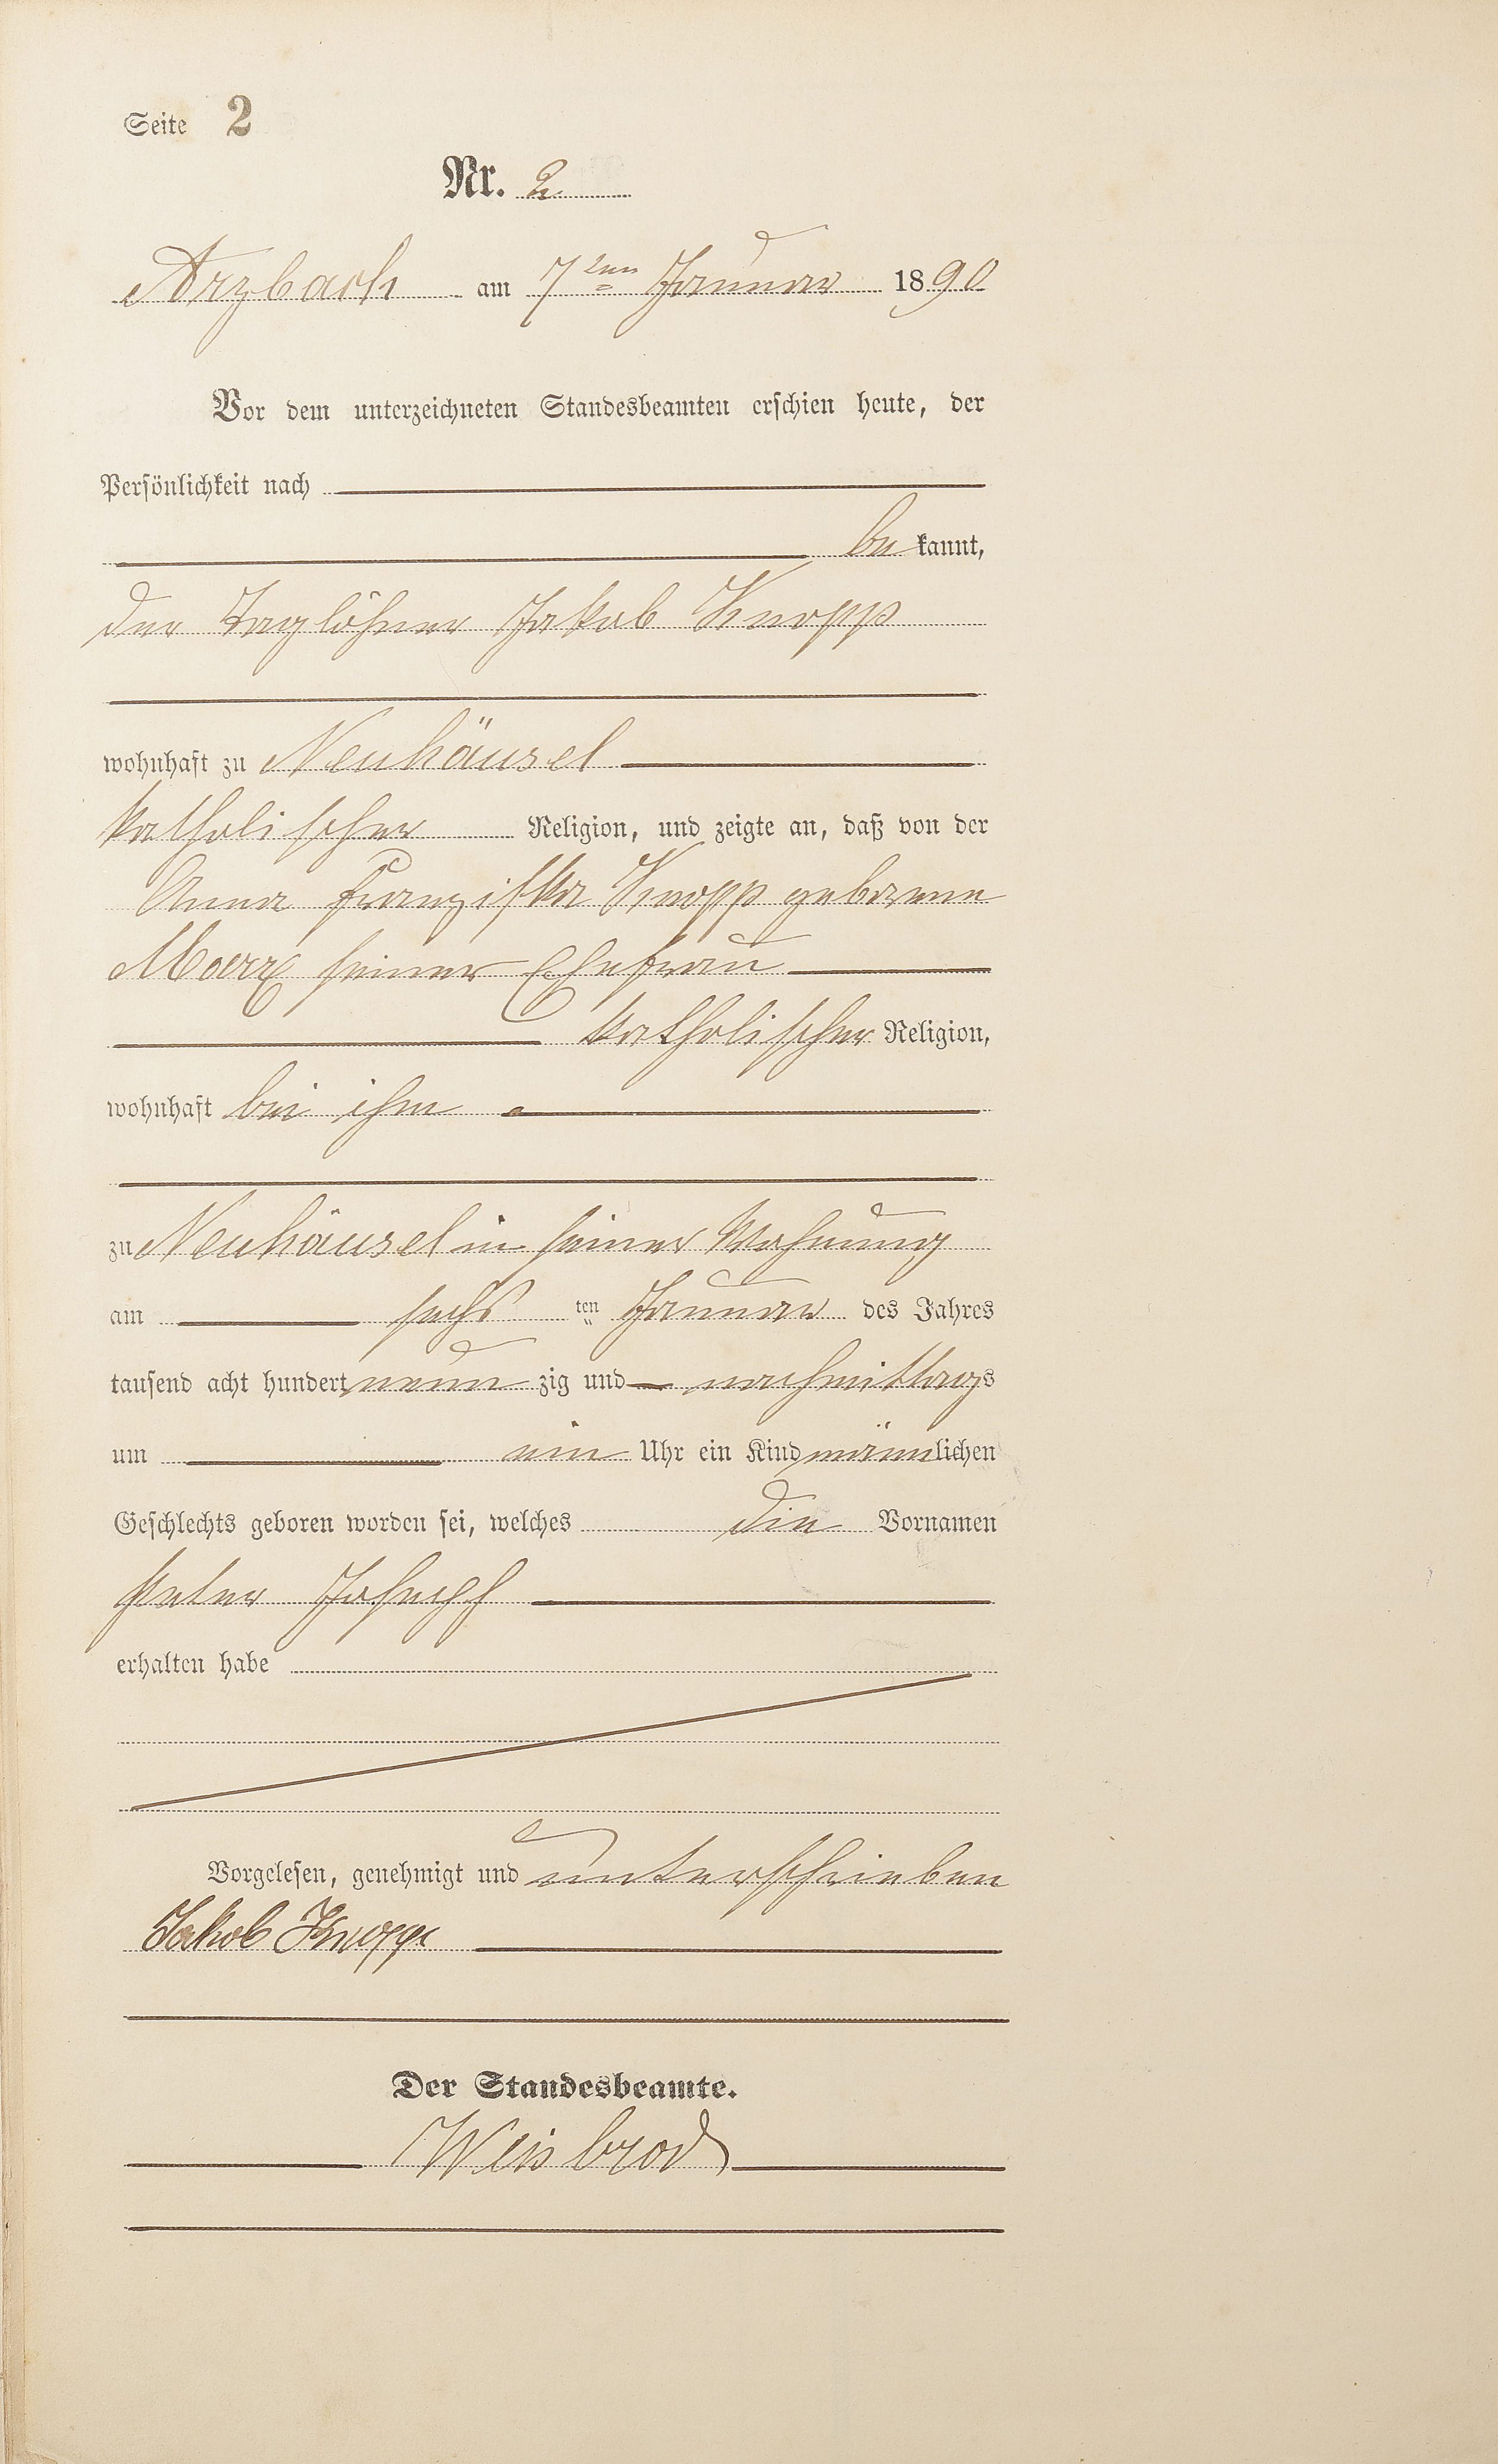 Seite 2
Nr. 2.
Arzbach am 7ten Januar 1890
Vor dem unterzeichneten Standesbeamten erschien heute, der
Persönlichkeit nach
be kannt,
der Taglöhner Jakob Knopp
wohnhaft zu Neuhäusel
katholischer Religion, und zeigte an, daß von der
Anna Franziska Knopp geborene
Marx seiner Ehefrau
katholischer Religion,
wohnhaft bei ihm
zu Neuhäusel in seiner Wohnung
am sechs ten Januar des Jahres
tausend acht hundert neun zig und nachmittags
um ein Uhr ein Kind männlichen
Geschlechts geboren worden sei, welches die Vornamen
Peter Joseph
erhalten habe
Vorgelesen, genehmigt und unterschrieben
Jakob Knopp
Der Standesbeamte.
Weisbrod